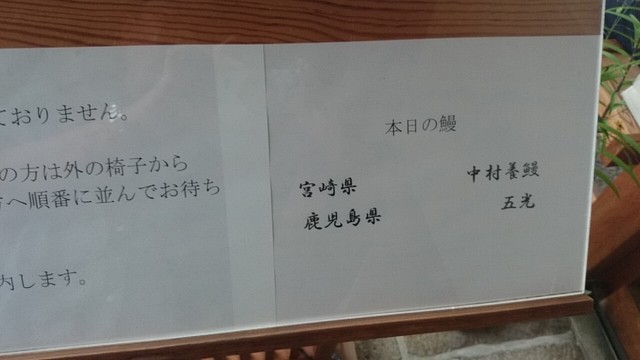 ておりません。
の方は外の椅子から
へ順番に並んでお待ち
内します。
本日の鰻
宮崎県 中村養鰻
鹿児島県 五光